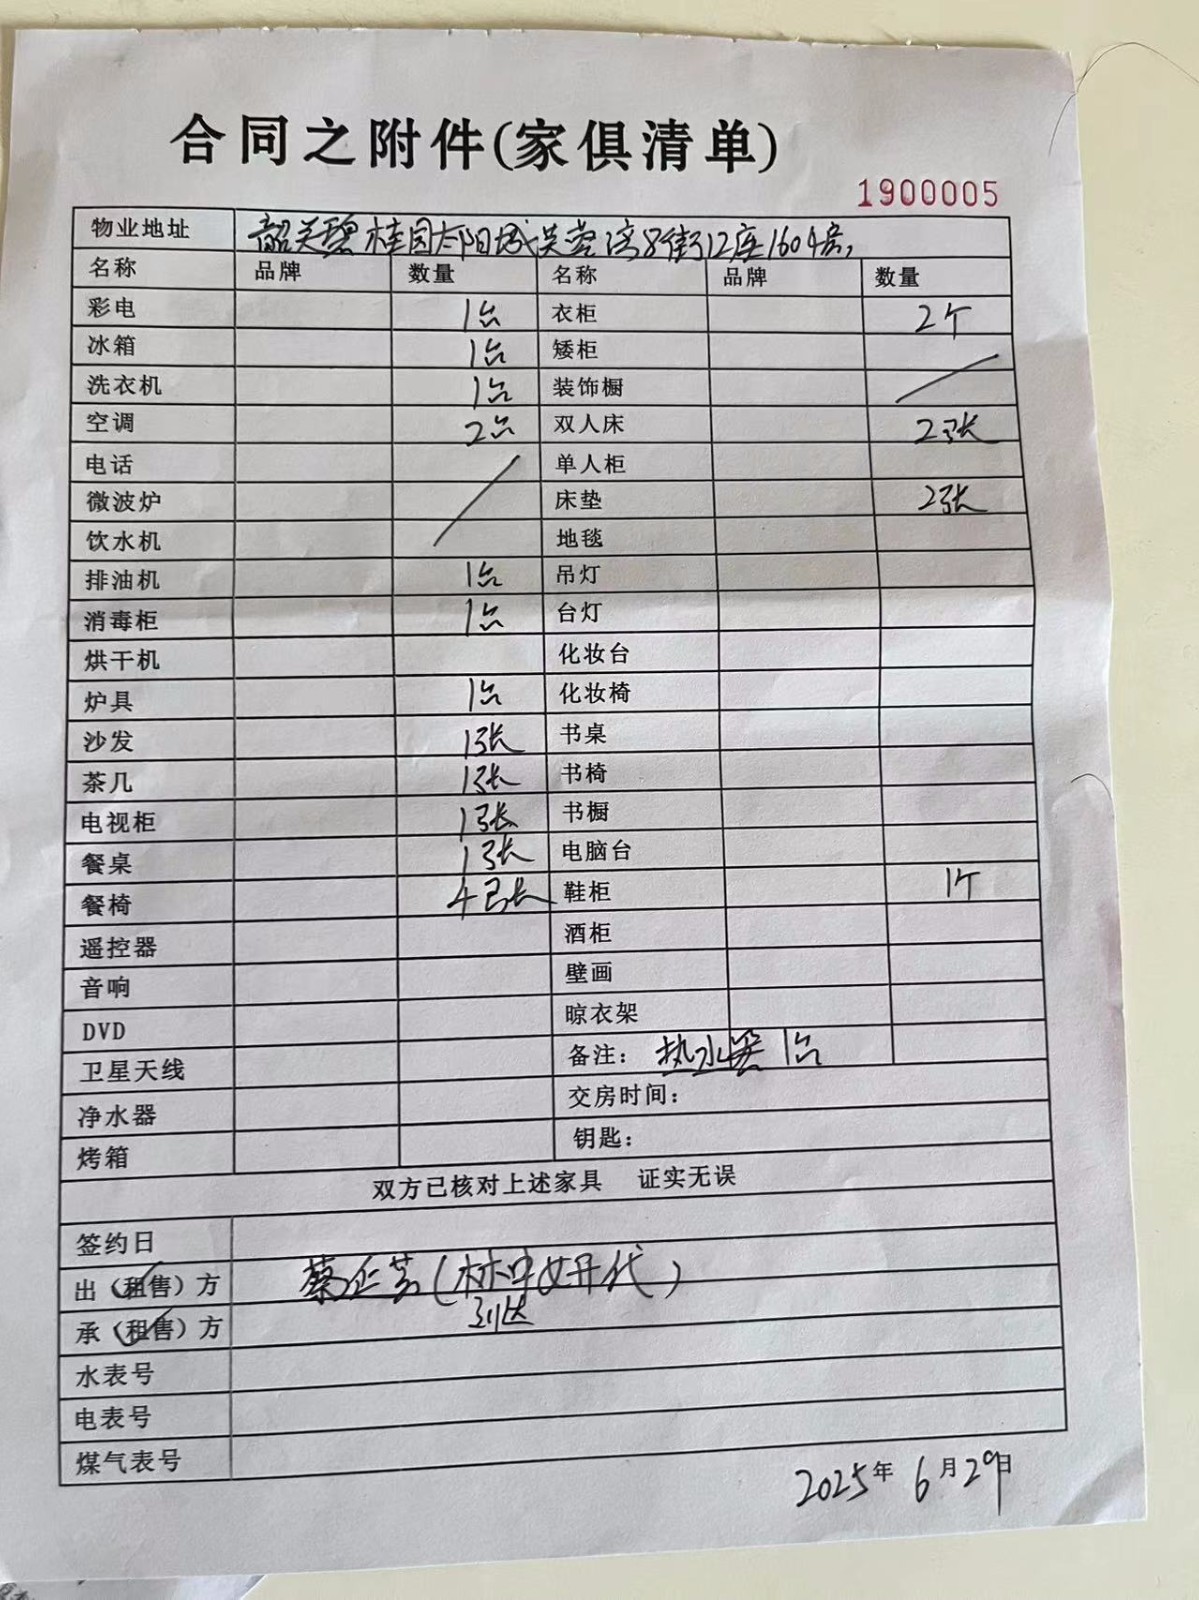 合同之附件(家俱清单)
1900005
物业地址 韶关碧桂园太阳城芙蓉湾8街12座1604房,
名称 品牌 数量 名称 品牌 数量
彩电 1台 衣柜 2个
冰箱 1台 矮柜
洗衣机 1台 装饰橱
空调 2台 双人床 2张
电话 单人柜
微波炉 床垫 2张
饮水机 地毯
排油机 1台 吊灯
消毒柜 1台 台灯
烘干机 化妆台
炉具 1台 化妆椅
沙发 1张 书桌
茶几 1张 书椅
电视柜 1张 书橱
餐桌 1张 电脑台
餐椅 4张 鞋柜 1个
遥控器 酒柜
音响 壁画
DVD 晾衣架
卫星天线 备注: 热水器 1台
净水器 交房时间:
烤箱 钥匙:
双方已核对上述家具 证实无误
签约日
出(租售)方 蔡正芸(林中妍代)
承(租售)方 刘达
水表号
电表号
煤气表号
2025年 6月29日